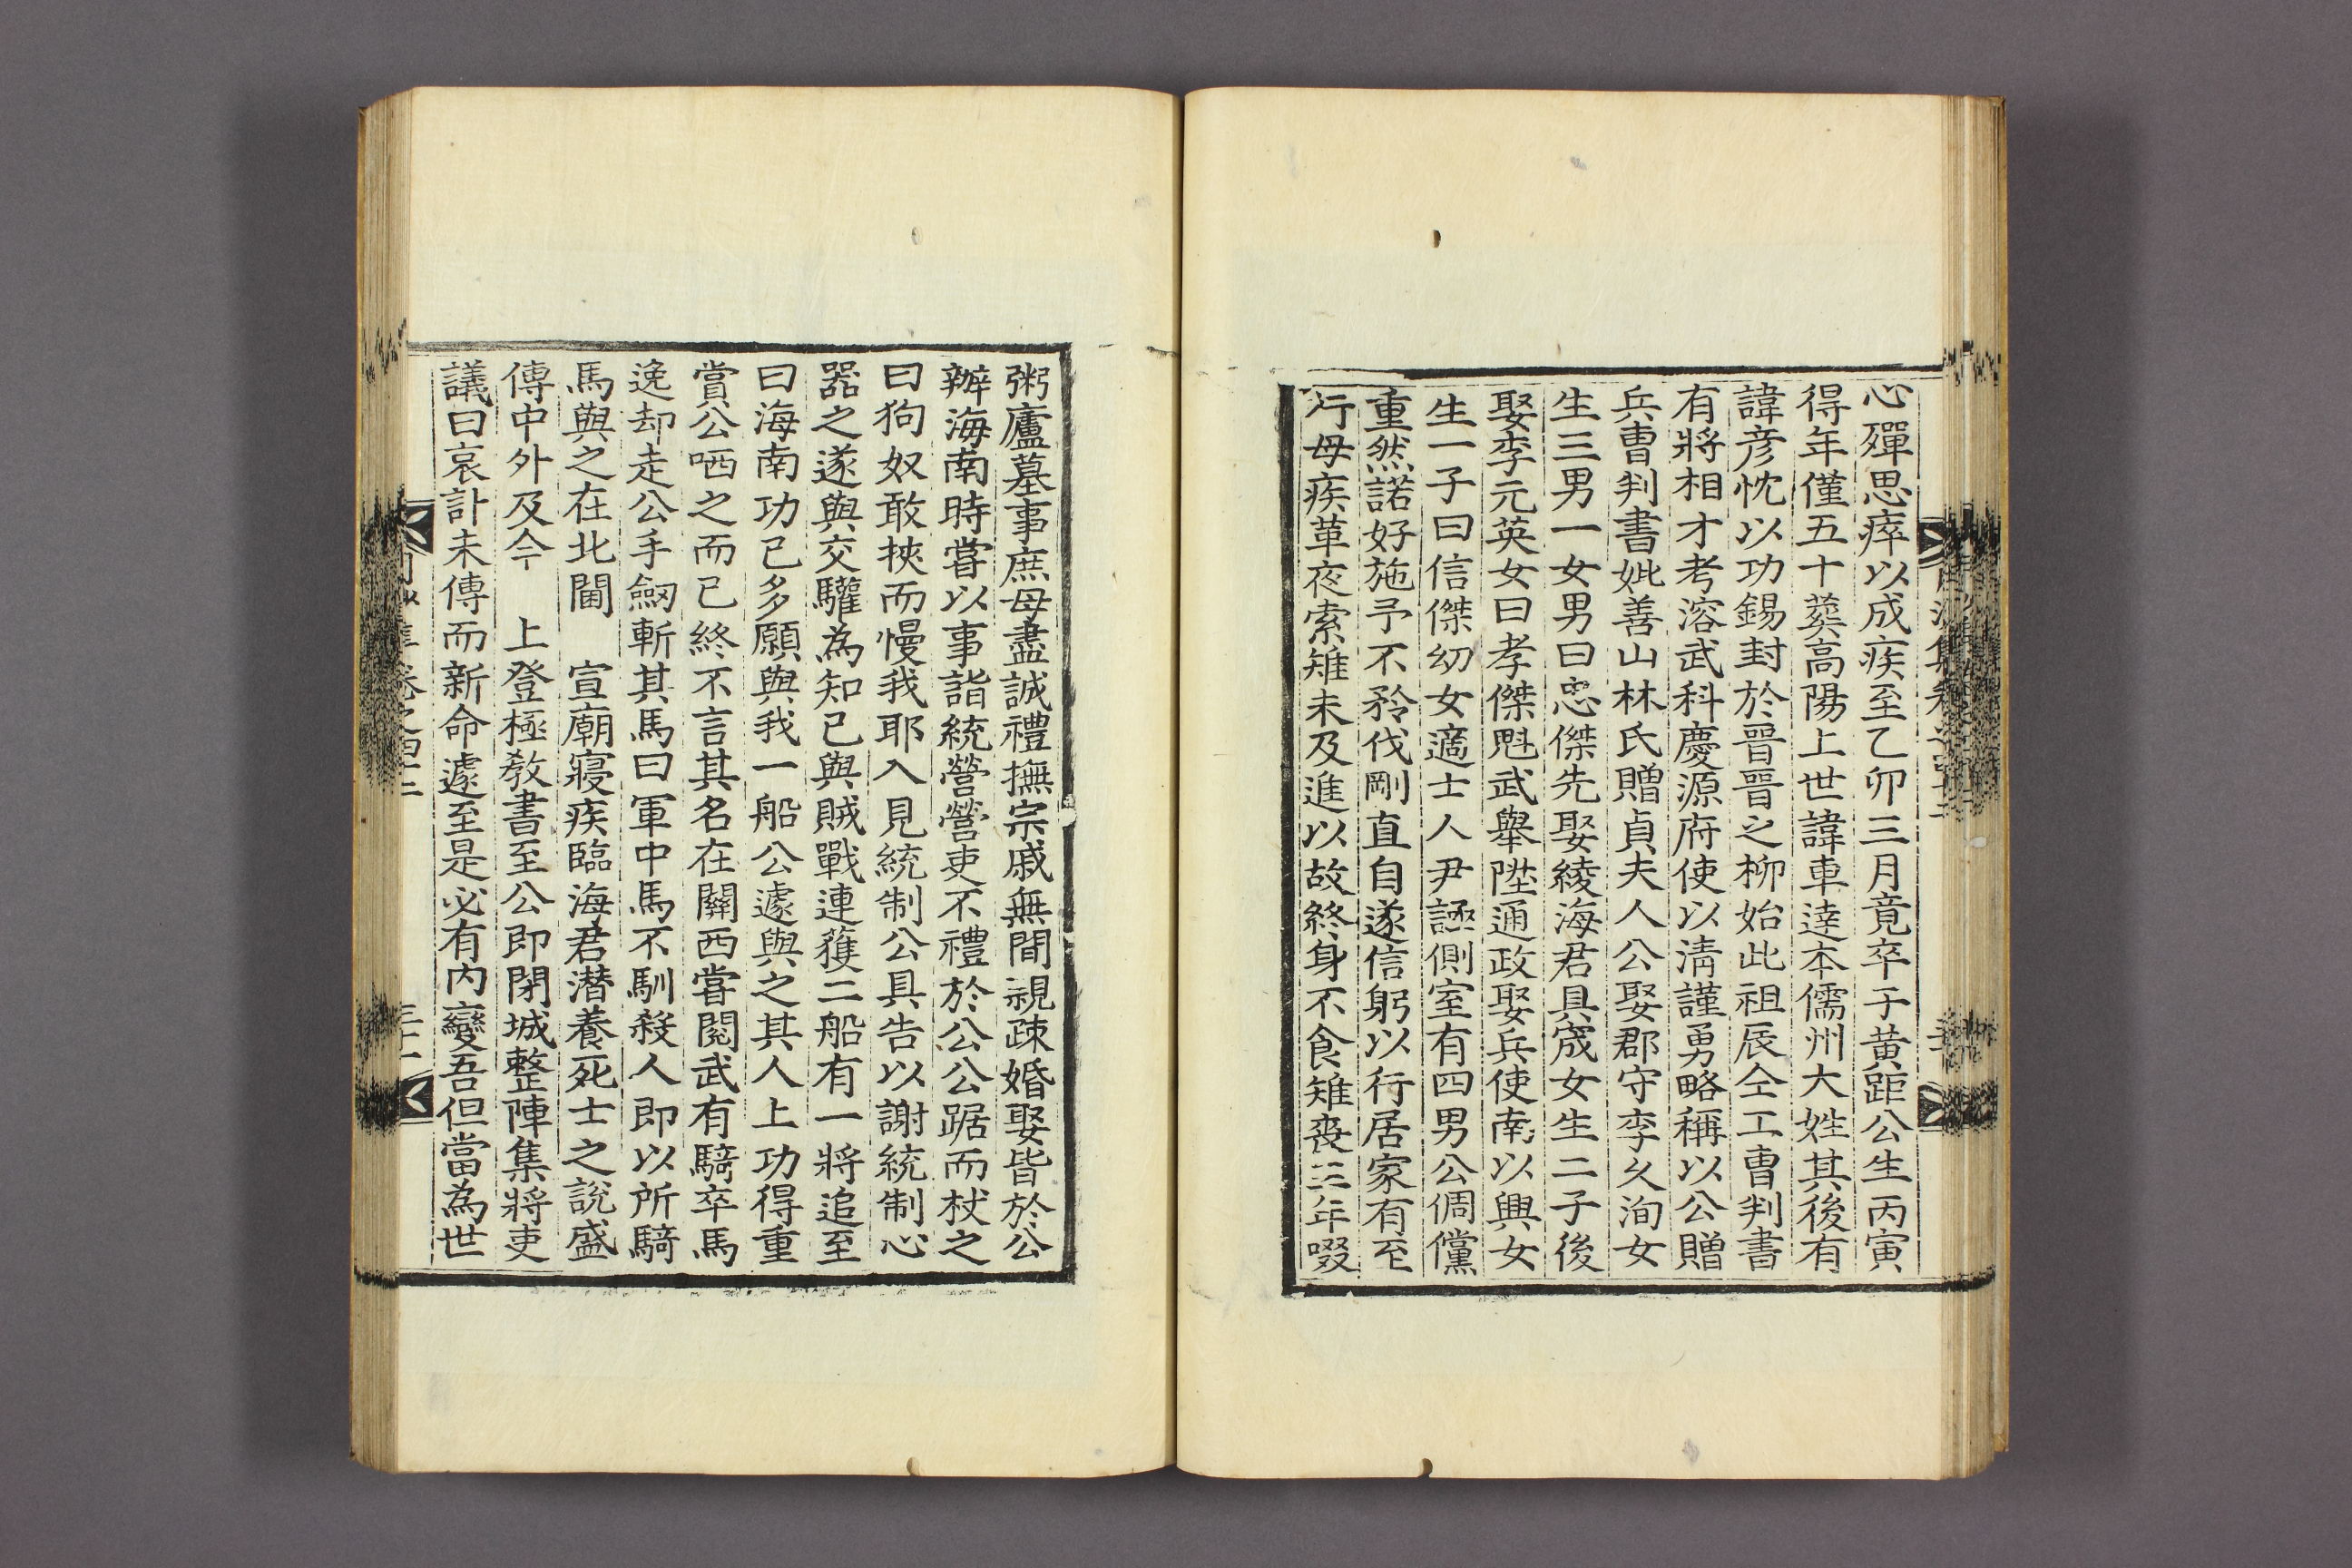 心殫思瘁以成疾至乙卯三月竟卒于黃距公生丙寅
得年僅五十葬高陽上世諱車達本儒州大姓其後有
諱彦忱以功錫封於晉晉之柳始此祖辰仝工曹判書
有將相才考溶武科慶源府使以清謹勇略稱以公贈
兵曹判書妣善山林氏贈貞夫人公娶郡守李久洵女
生三男一女男曰忠傑先娶綾海君具宬女生二子後
娶李元英女曰孝傑魁武舉陞通政娶兵使南以興女
生一子曰信傑幼女適士人尹諏側室有四男公倜儻
重然諾好施予不矜伐剛直自遂信躬以行居家有至
行母疾革夜索雉未及進以故終身不食雉喪三年啜
粥廬墓事庶母盡誠禮撫宗戚無間視疎婚娶皆於公
辦海南時嘗以事詣統營營吏不禮於公公踞而杖之
曰狗奴敢挾而慢我耶入見統制公具告以謝統制心
器之遂與交驩為知己與賊戰連獲二船有一將追至
曰海南功已多願與我一船公遽與之其人上功得重
賞公哂之而已終不言其名在關西嘗閱武有騎卒馬
逸却走公手劒斬其馬曰軍中馬不馴殺人即以所騎
馬與之在北閫 宣廟寢疾臨海君潜養死士之說盛
傳中外及今 上登極教書至公即閉城整陣集將吏
議曰哀訃未傳而新命遽至是必有內變吾但當為世